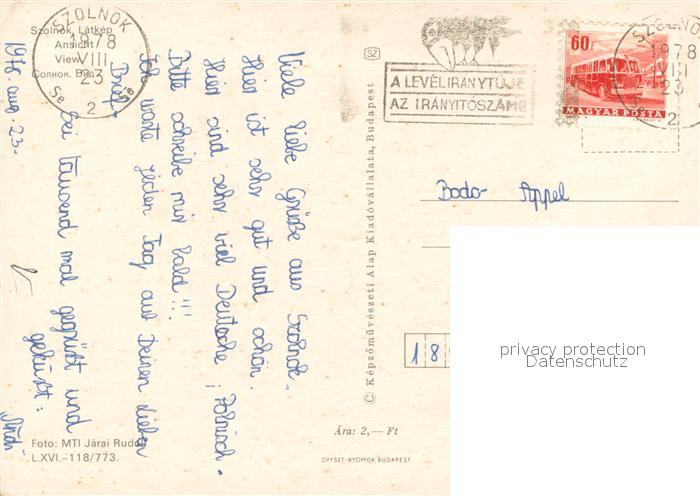 Szolnok, Látkép
Ansicht
View
Солнок. Вид
SZOLNOK
1978
VIII
23
2
1978 aug 23.
Viele liebe Grüße aus Szolnok.
Hier ist sehr gut und schön.
Hier sind sehr viel Deutsche, Polnisch.
Bitte schreibe mir bald!!!
Ich warte jeden Tag auf Deinen lieben
Brief.
Sei tausend mal gegrüßt und
geküsst:
Foto: MTI Járai Rudolf
L.XVI.–118/773.
SZ
© Képzőművészeti Alap Kiadóvállalata, Budapest
Ára: 2,— Ft
OFFSET-NYOMDA BUDAPEST
A LEVÉLIRÁNYTŰJE
AZ IRÁNYÍTÓSZÁM!
60f
MAGYAR POSTA
SZOLNO
1978
VIII
23
2
Bodo Appel
18
privacy protection
Datenschutz